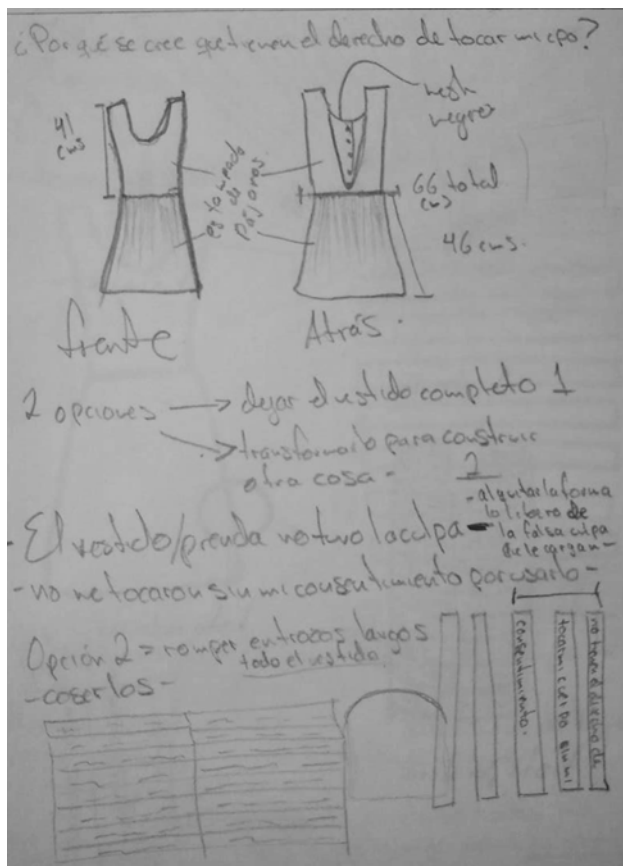 ¿Por qué se cree que tienen el derecho de tocar mi cpo?
41
cms
mesh
negro
estampado
de
pájaros.
66 total
cms
46 cms.
frente
Atrás.
2 opciones → dejar el vestido completo 1
→ transformarlo para construir
otra cosa -
2
- al quitar la forma
la libero de
la falsa culpa
que le cargan -
- El vestido/prenda no tuvo la culpa -
- no me tocaron sin mi consentimiento por usarlo -
Opción 2 = romper en trozos largos
todo el vestido.
- coserlos -
no tienen el derecho de
tocar mi cuerpo sin mi
consentimiento.